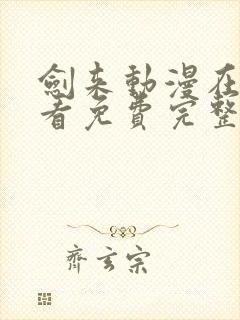 劍来動漫在
看免費完整
齊玄宗